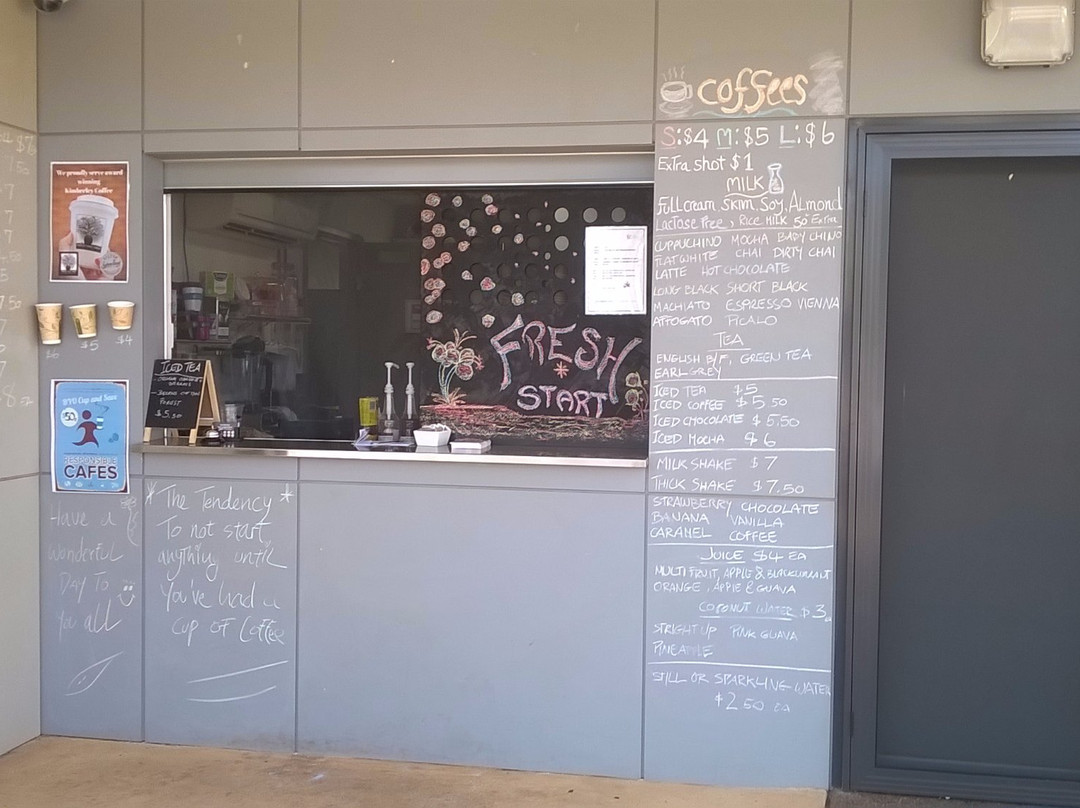 We proudly serve award
winning
Kimberley Coffee
$6
$5
$4
BYO Cup and Save
50
RESPONSIBLE
CAFES
Have a
Wonderful
Day To
You all
* The Tendency *
To not start
anything until
You've had a
cup of Coffee
ICED TEA
$5.50
FRESH
START
coffees
S:$4 M:$5 L:$6
Extra shot $1
MILK
Full cream, Skim, Soy, Almond
Lactose Free, Rice Milk 50 Extra
CUPPUCHINO MOCHA BABYCHINO
FLAT WHITE CHAI DIRTY CHAI
LATTE HOT CHOCOLATE
LONG BLACK SHORT BLACK
MACHIATO ESPRESSO VIENNA
AFFOGATO PICALO
TEA
ENGLISH B/F, GREEN TEA
EARL GREY
ICED TEA $5
ICED COFFEE $5.50
ICED CHOCOLATE $5.50
ICED MOCHA $6
MILK SHAKE $7
THICK SHAKE $7.50
STRAWBERRY CHOCOLATE
BANANA VANILLA
CARAMEL COFFEE
JUICE $4 EA
MULTI FRUIT, APPLE & BLACKCURRANT
ORANGE, APPLE & GUAVA
COCONUT WATER $3
STRIGHT UP PINK GUAVA
PINEAPPLE
STILL OR SPARKLING WATER
$2.50 ea